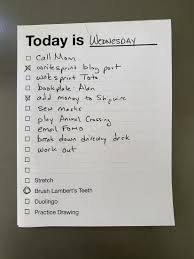 Today is WEDNESDAY
call Mom
writesprint blog post
websprint Toto
bookdate: Alan
add money to Skywire
sew masks
play Animal Crossing
email FOMO
break down delivery deck
work out
Stretch
Brush Lambert's Teeth
Duolingo
Practice Drawing